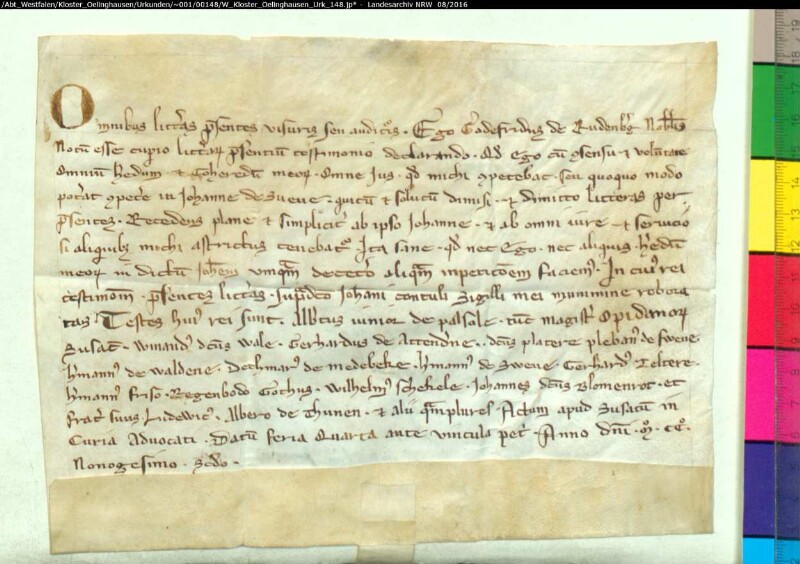 /Abt_Westfalen/Kloster_Oelinghausen/Urkunden/~001/00148/W_Kloster_Oelinghausen_Urk_148.jp* - Landesarchiv NRW 08/2016
Omnibus litt'as p'sentes visuris seu audit'is . Ego Godefridus de Rudenb'g Nobilis
Notu esse cupio litt'ar p'sentiu testimonio declarando . qd Ego cu gsensu & volu'tate
Omniu h'edum & Coheredu meor . Omne Ius . qd michi gpetebat . seu quoquo modo
pot'at gpet'e in Johanne de Sueve . quitu & solutu dimisi . & dimitto litteras per
p'sentes . Recedens plane & simplicit' ab ipso Johanne . & ab omni iure & servicio
si aliquib' michi astrictus tenebat' Ita sane . qd nec Ego . nec aliquis h'edu
meor in dictu Joh'em umqam decet'o aliqam inpeticoem faciem' . In cui' rei
testimom . p'sentes litt'as . sup'adco Joh'ani contuli Sigilli mei munimine robora
tas Testes hui' rei sunt . Alb'tus iunior de palsole . tuc magist' Opidanor
Susat' . Winand' dcus Wale . Gerhardus de Attend'ne . . dcus platere pleban' de Sweve
h'mann' de waldene . Dethmar' de medebeke . h'mann' de Sweve Gerhard' Teltere .
h'mann' friso . Regenbodo Gothus . Wilhelm' Schekele . Johannes dcus Blomenrot . et
frat' suus Lidewic' . Albero de Thunen . & alii qamplures . Actum apud Susatu in
Curia Advocati . Datu feria Quarta ante vincula pet' . Anno dni . mo . cco .
Nonogesimo . scdo .